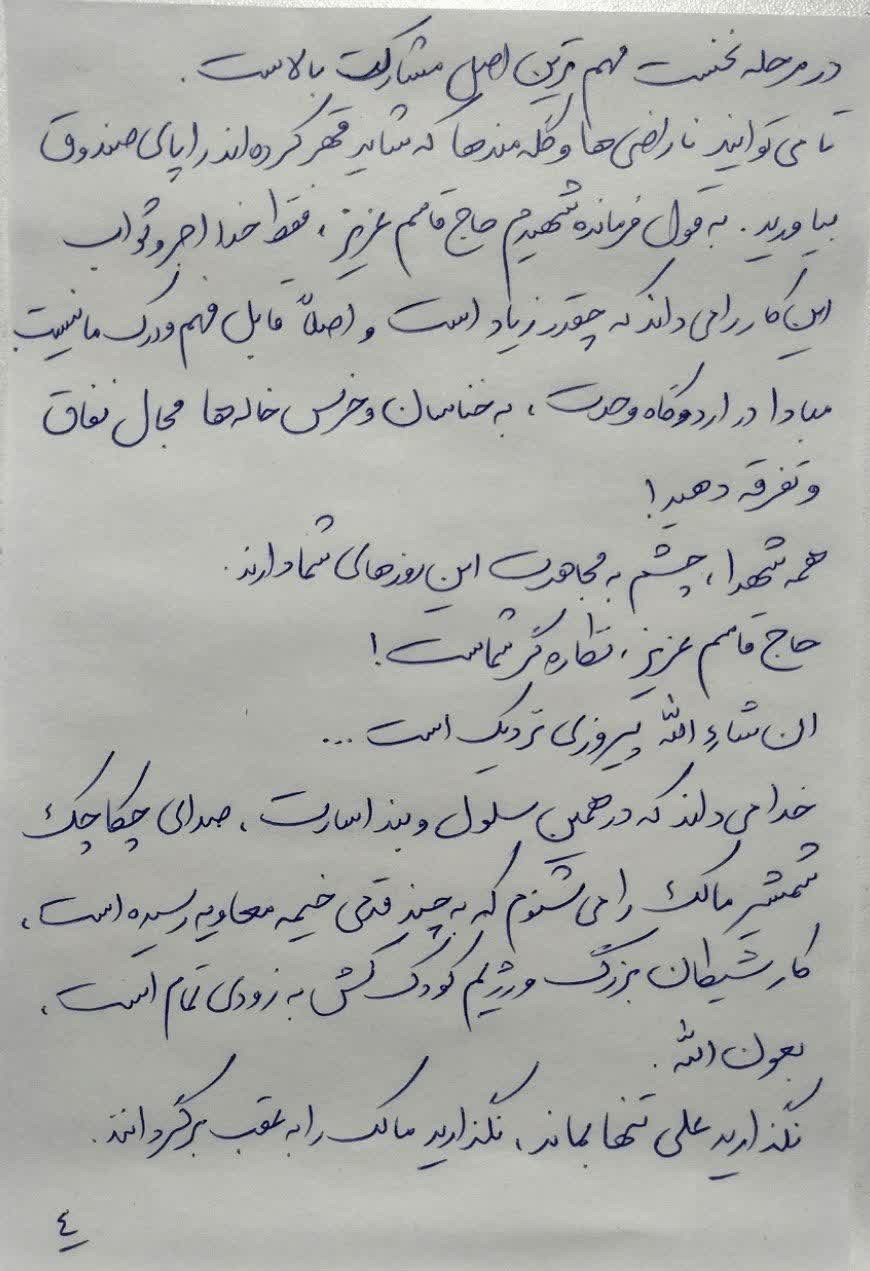 در مرحله نخست مهم ترین اصل مشارکت بالاست .
تا می توانید ناراضی ها و گله مندها که شاید قهر کرده اند را پای صندوق
بیاورید . به قول فرمانده شهیدم حاج قاسم عزیز ، فقط خدا اجر و ثواب
این کار را می داند که چقدر زیاد است و اصلاً قابل فهم و درک ما نیست
مبادا در اردوگاه وحدت ، به خناسان و خرس خاله ها مجال نفاق
و تفرقه دهید !
همه شهدا ، چشم به مجاهدت این روزهای شما دارند .
حاج قاسم عزیز ، نظاره گر شماست !
ان شاء الله پیروزی نزدیک است ...
خدا می داند که در همین سلول و بند اسارت ، صدای چکاچک
شمشیر مالک را می شنوم که به چند قدمی خیمه معاویه رسیده است ،
کار شیطان بزرگ و رژیم کودک کش به زودی تمام است ،
بعون الله .
نگذارید علی تنها بماند ، نگذارید مالک را به عقب برگردانند .
٤